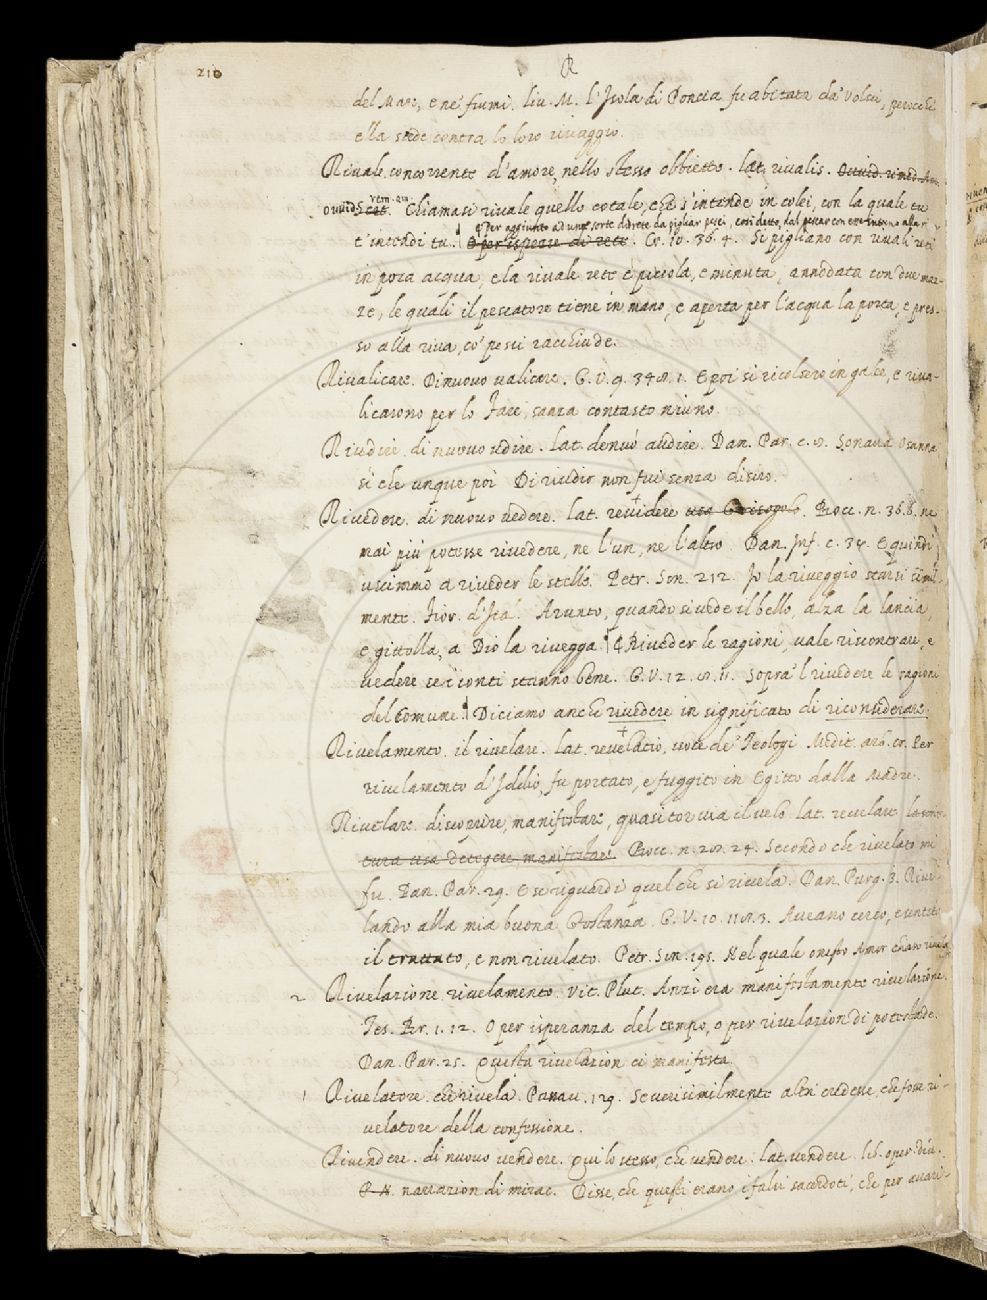 210
R
del Mare, e ne' fiumi. Liv. M. L'Isola di Poncia fu abitata da' Volsci, perocchè
ella siede contra lo loro rivaggio.
Rivale. concorrente d'amore, nello stesso obbietto. lat. rivalis. Ovvid. rimed. Am.
rem. am.
ovvid. S. cat. Chiamasi rivale quello cotale, che s'intende in colei, con la quale tu
e per aggiunto ad una sorte di rete da pigliar pesci, così detto, dal pescar con essa intorno alla ri
t'intendi tu. E per ispezie di rete. Cr. 10. 36. 4. Si pigliano con rivali reti
in poca acqua, e la rivale rete è piccola, e minuta, annodata con due maz-
ze, le quali il pescatore tiene in mano, e aperta per l'acqua la porta, e pres-
so alla riva, co' pesci racchiude.
Rivalicare. Di nuovo valicare. G. V. 9. 348. 1. E poi si ricolsero in galee, e riva-
licarono per lo Face, sanza contasto niuno.
Riudire. di nuovo udire. lat. denuò audire. Dan. Par. c. 8. Sonava Osanna
sì che unque poi Di riudir non fui senza disiro.
Rivedere. di nuovo vedere. lat. revidere usa Crisogolo. Bocc. n. 36. 8. ne
mai più potesse rivedere, ne l'un, ne l'altro. Dan. Inf. c. 34. E quindi
uscimmo a riveder le stelle. Petr. Son. 212. Io la riveggio starsi umil-
mente. Fior. d'Ital. Arunto, quando si vede il bello, alza la lancia,
e gittolla, a Dio la rivegga. E Riveder le ragioni, vale riscontrare, e
vedere se i conti stanno bene. G. V. 12. 8. 11. Sopra 'l rivedere le ragioni
del Comune. Diciamo anche rivedere in significato di riconsiderare.
Rivelamento. il rivelare. lat. revelatio, voce de' Teologi. Medit. arb. cr. Per
rivelamento d'Iddio, fu portato, e fuggito in Egitto dalla Madre.
Rivelare. discoprire, manifestare, quasi tor via il velo. lat. revelare la scrit-
tura usa detegere manifestare. Bocc. n. 28. 24. Secondo che rivelato mi
fu. Dan. Par. 29. E se riguardi quel che si rivela. Dan. Purg. 3. Rive-
lando alla mia buona Costanza. G. V. 10. 118. 3. Aveano cerco, e sentito
il trattato, e non rivelato. Petr. Son. 195. Nel quale onesto Amor chiaro rivela
2 Rivelazione. rivelamento. Vit. Plut. Anzi era manifestamente rivelazione.
Tes. Br. 1. 12. O per isperanza del tempo, o per rivelazion di potestade.
Dan. Par. 25. Questa rivelazion ci manifesta.
1 Rivelatore. che rivela. Passav. 129. Se verisimilmente altri credesse, che fosse ri-
velatore della confessione.
Rivendere. di nuovo vendere. Qui lo stesso, che vendere. lat. vendere. lib. oper. div.
P. N. narrazion di mirac. Disse, che questi erano i falsi sacerdoti, che per avari-